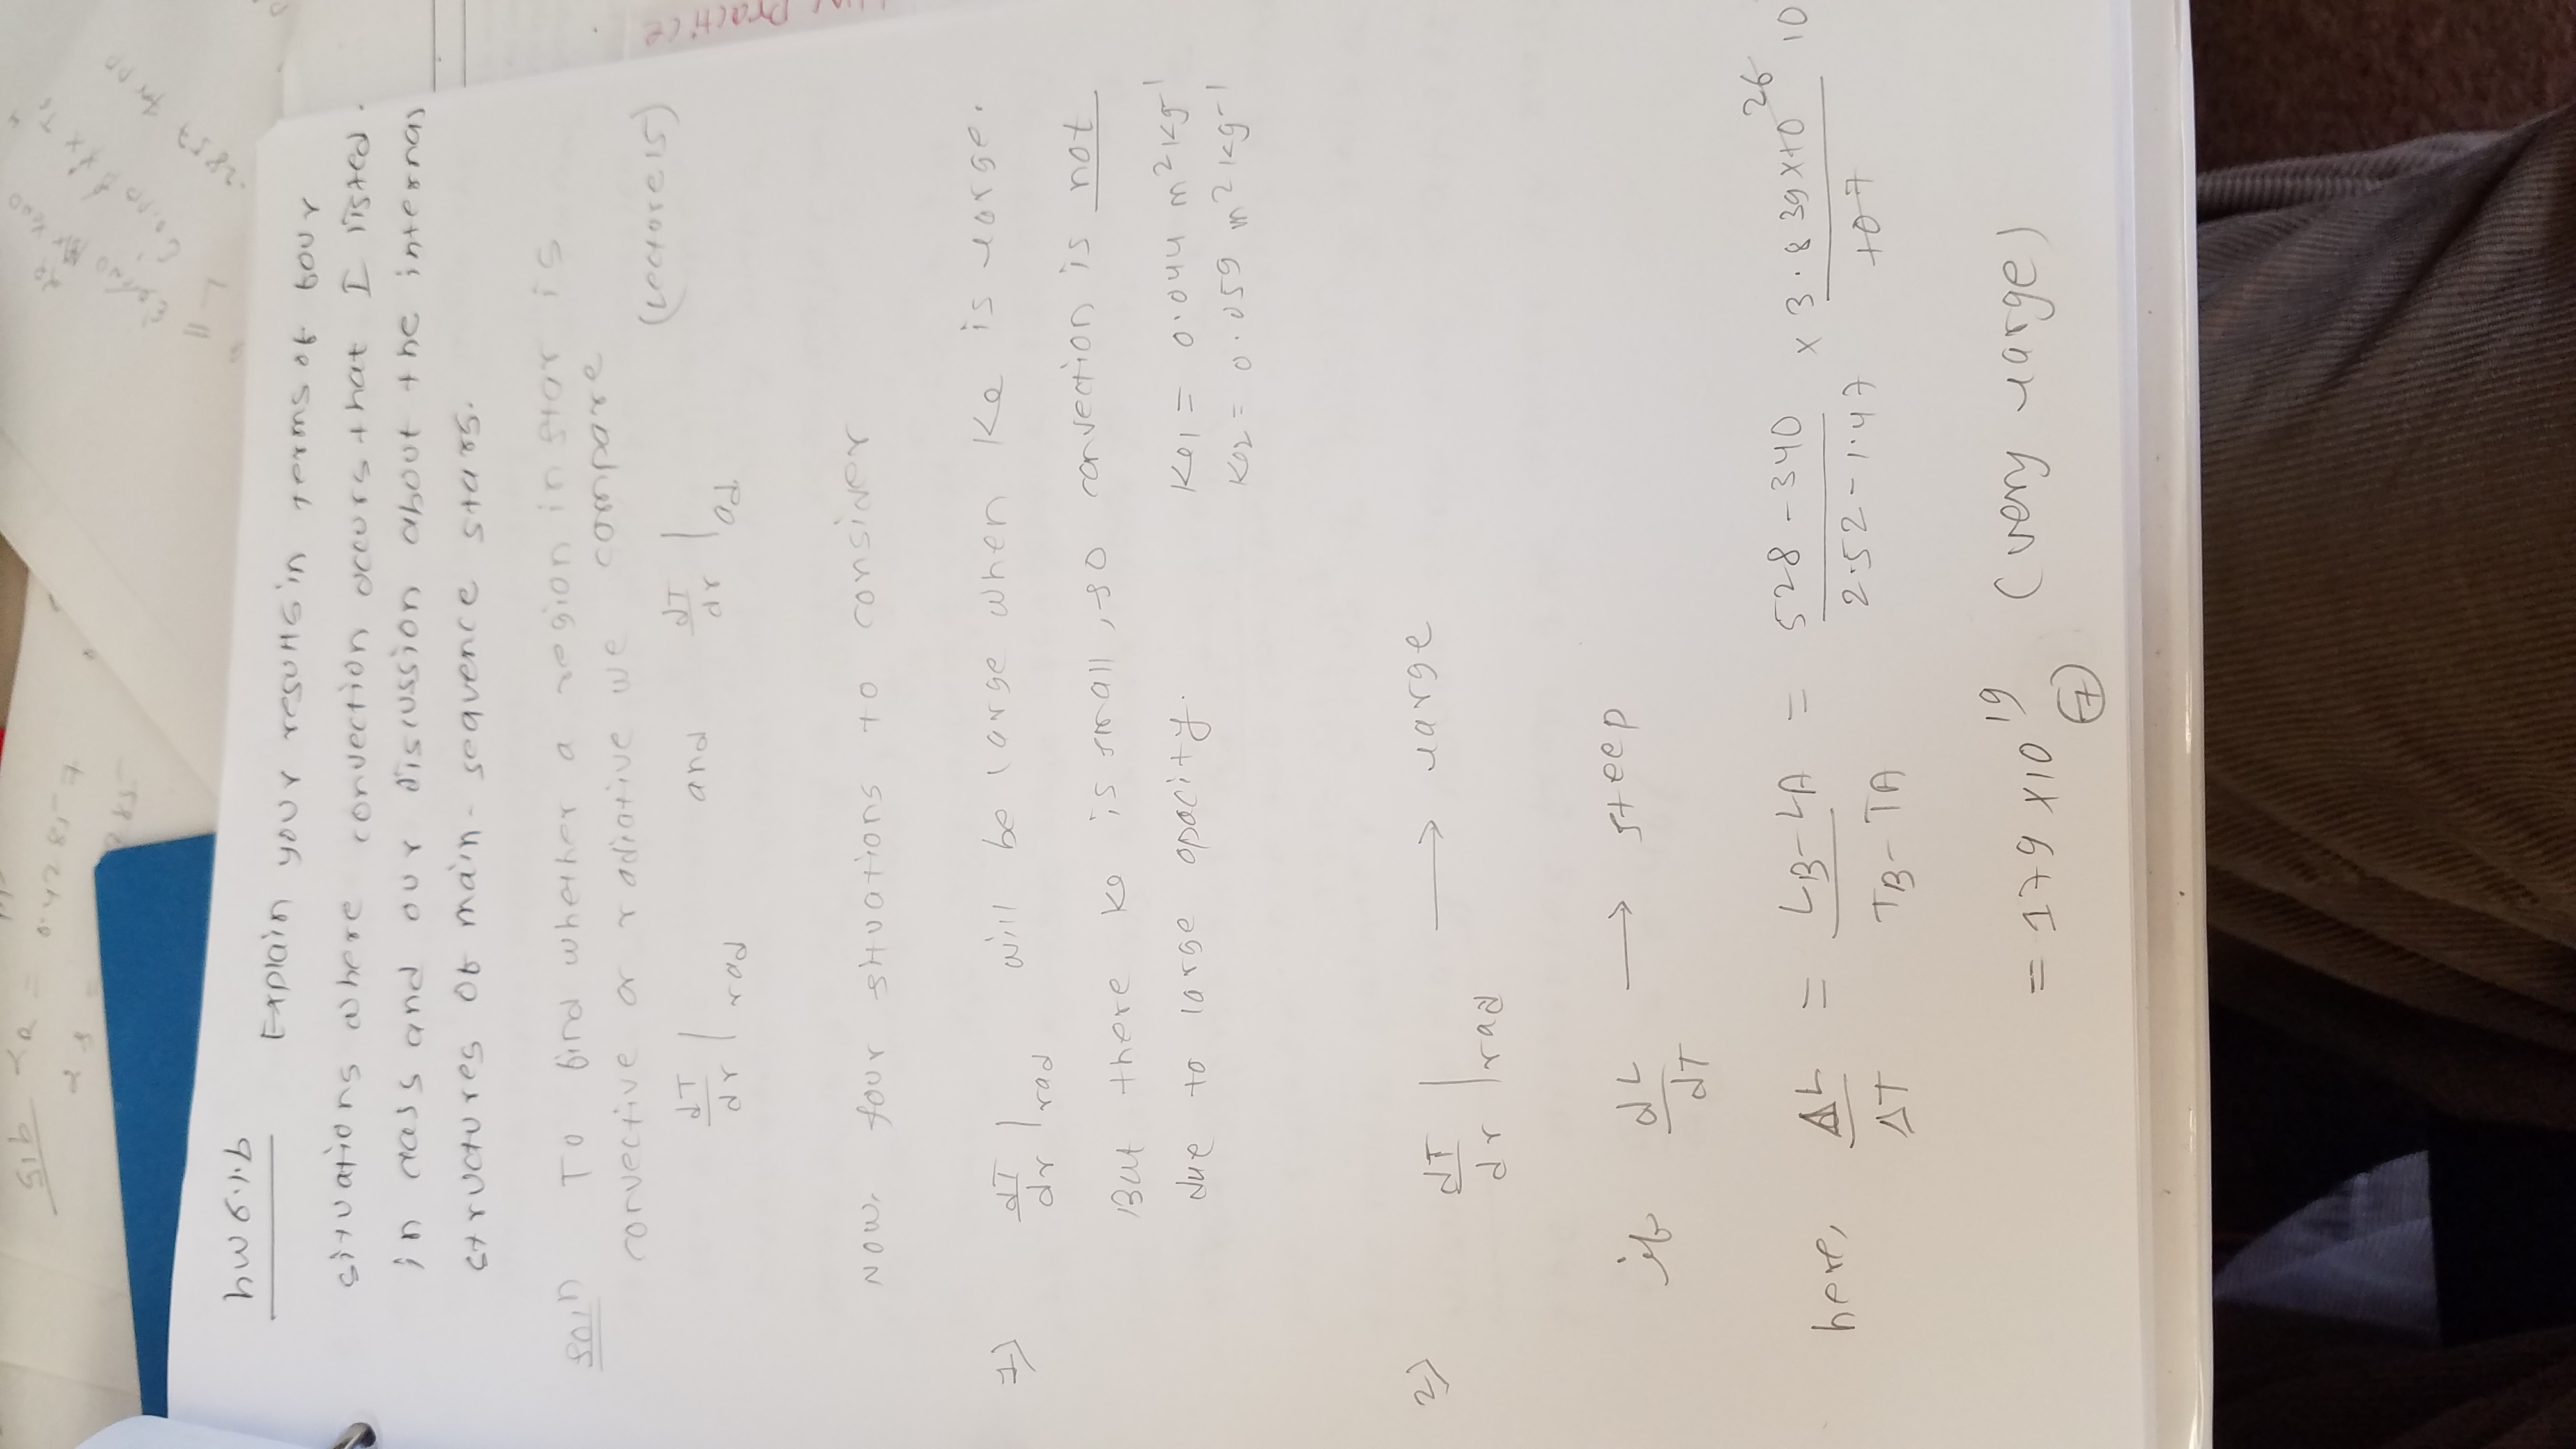 hw 6.1.b
Explain your results in terms of four
situations where convection occurs that I listed.
in class and our discussion about the internal
structures of main-sequence stars.
soln To find whether a region in star is
convective or radiative we compare
(Lecture 15)
dT/dr | rad and dT/dr | ad
Now, four situations to consider
1) dT/dr | rad will be large when Ke is large.
But there Ke is small, so convection is not
due to large opacity.
Ke1 = 0.044 m² kg⁻¹
Ke2 = 0.059 m² kg⁻¹
2) dT/dr | rad → large
if dL/dT → steep
here, ΔL/ΔT = LB-LA/TB-TA = 528-340/2.52-1.47 × 3.839×10²⁶/10⁷ 10
= 179 ×10¹⁹ (very large)
7
practice